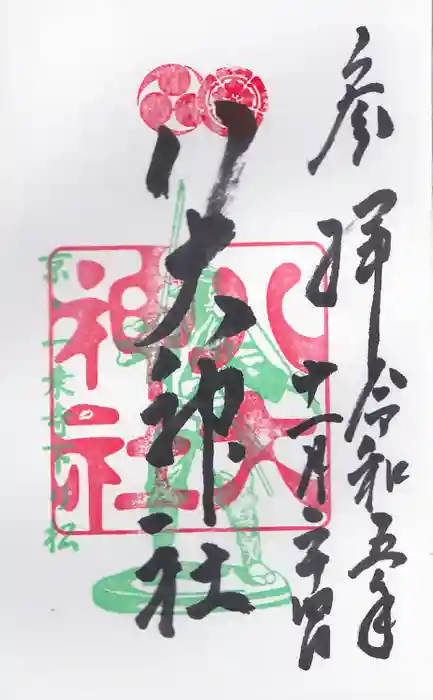 参拝 令和五年
十一月二十四日
八大神社
八大
神社
京 一乗寺下り松